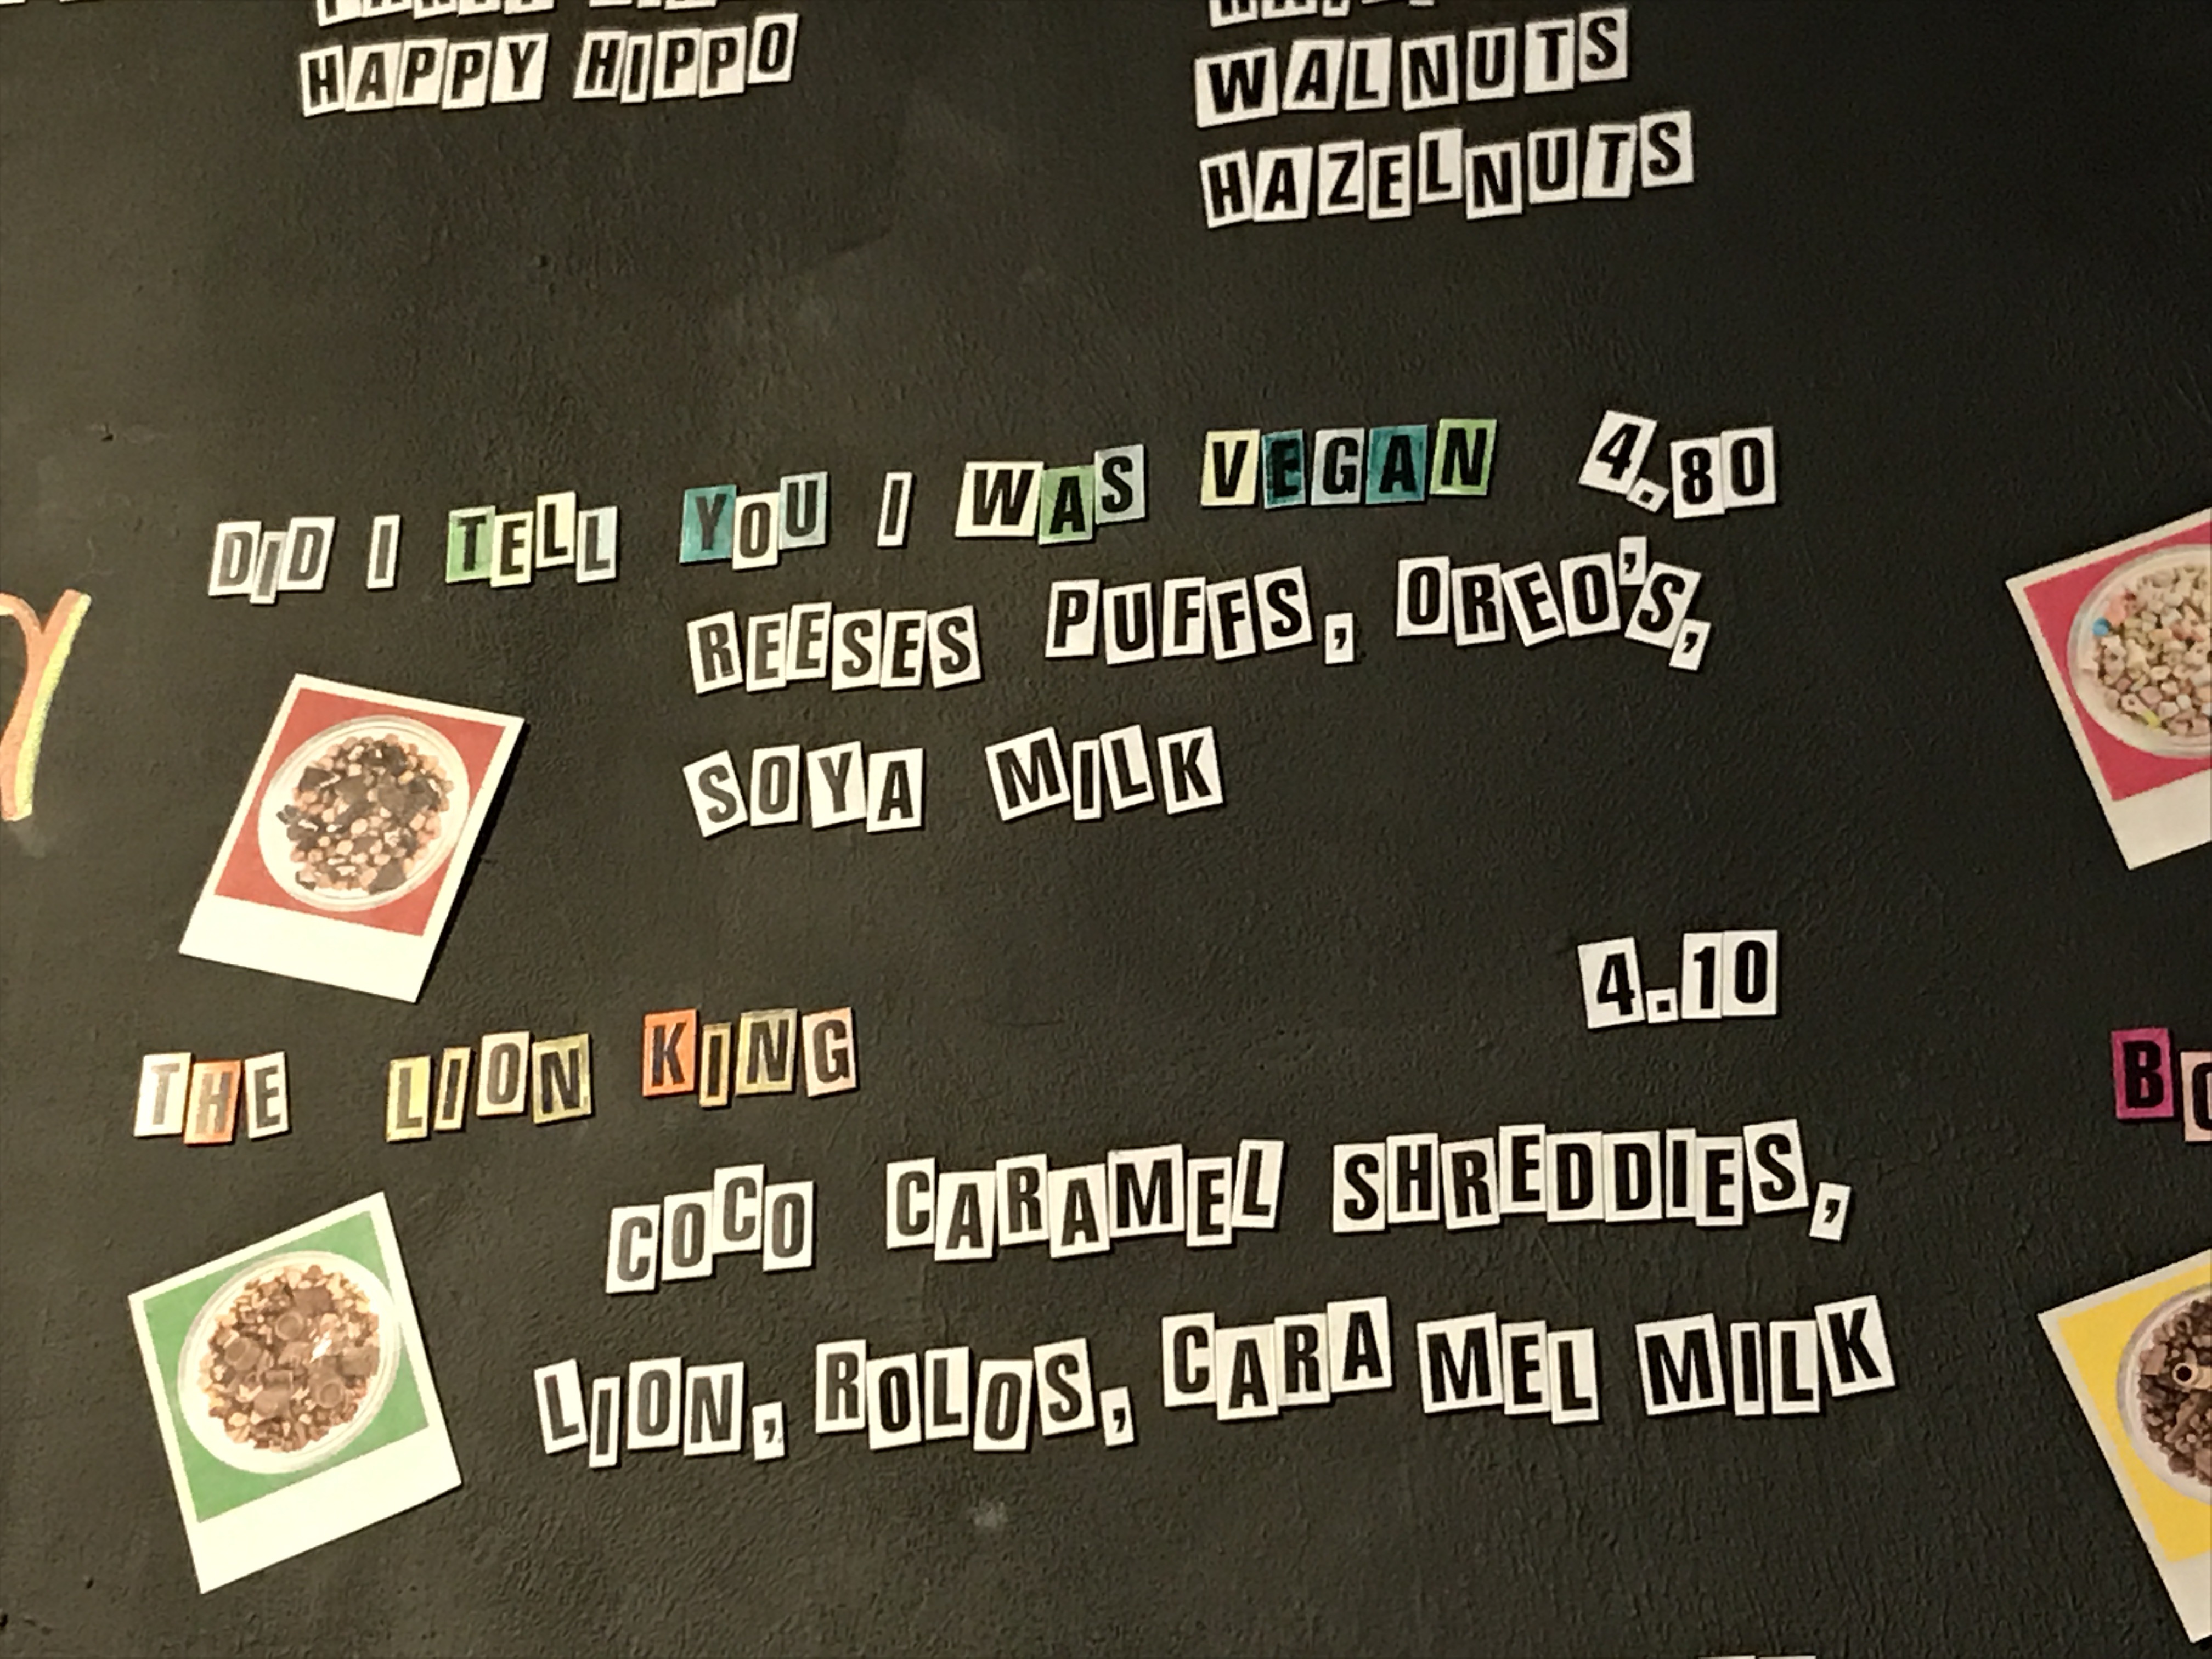 HAPPY HIPPO
WALNUTS
HAZELNUTS
DID I TELL YOU I WAS VEGAN 4.80
REESES PUFFS, OREO'S,
SOYA MILK
4.10
THE LION KING
COCO CARAMEL SHREDDIES,
LION, ROLOS, CARAMEL MILK